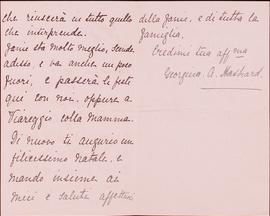 che riuscirà in tutto quello
che intraprende.
Janie sta molto meglio, scende
adesso e va anche un poco
fuori, e passerà le feste
qui con noi, oppure a
Viareggio colla Mamma.
Di nuovo ti auguro un
felicissimo Natale, e
mando insieme ai
miei i saluti affettuosi
della Janie, e di tutta la
famiglia.
Credimi tua affma
Georgina A.